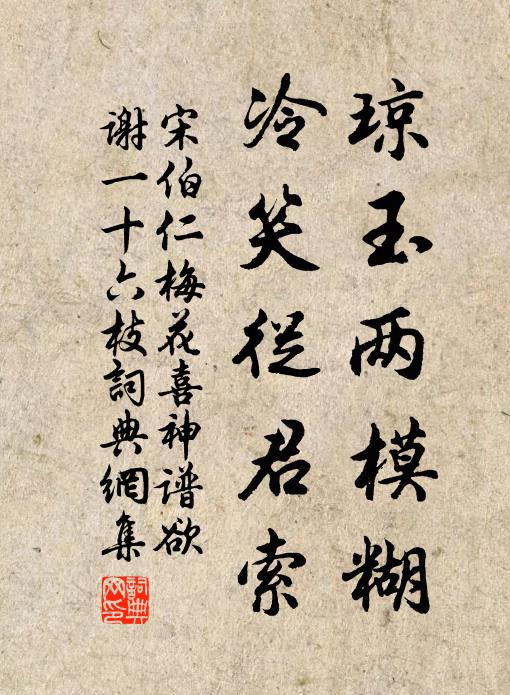 琼玉两模糊
冷笑従君索
宋伯仁梅花喜神谱欲
谢一十六枝詞典網集
詞典网印